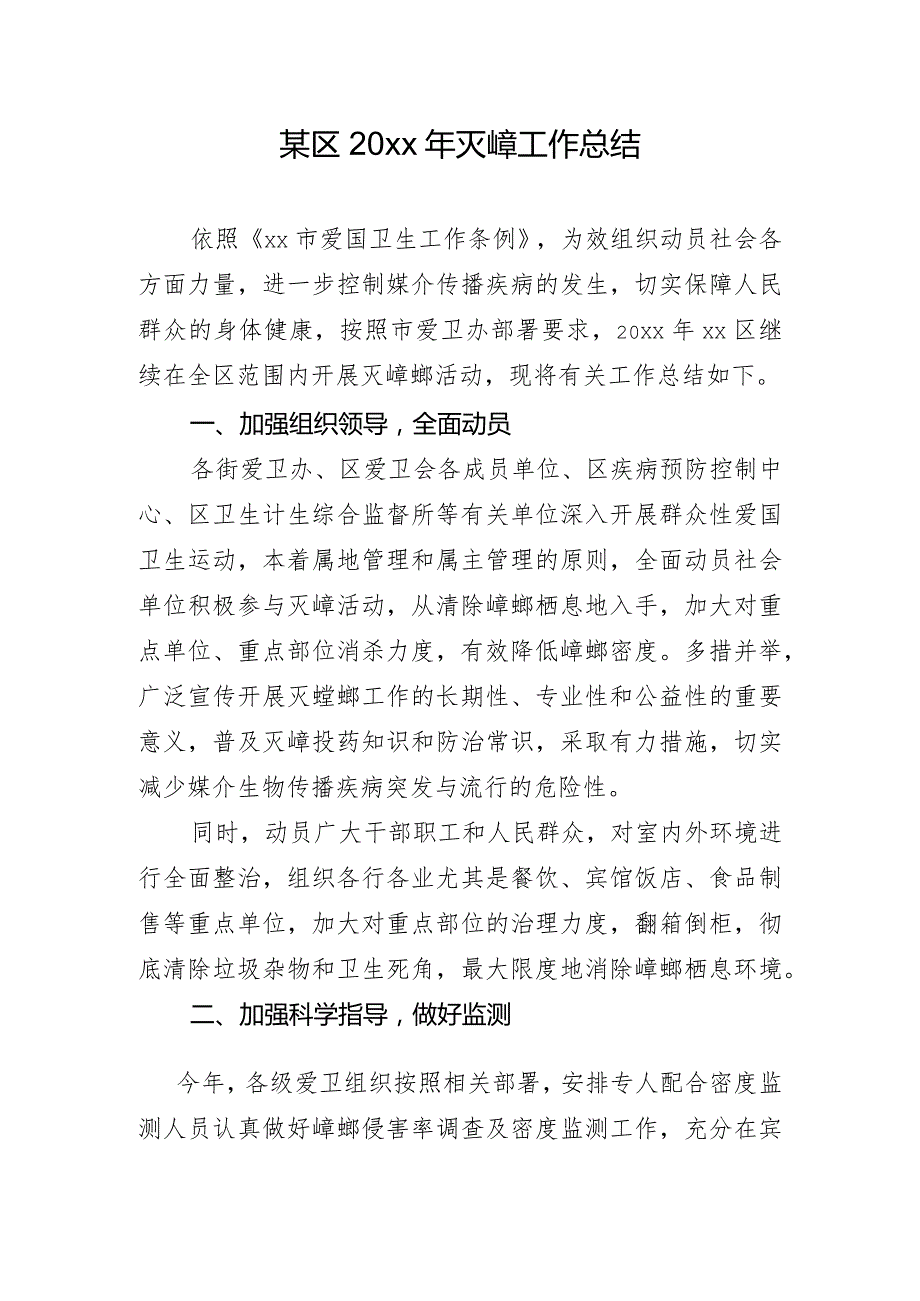 某区 20xx 年灭嶂工作总结
依照《xx 市爱国卫生工作条例》，为效组织动员社会各
方面力量，进一步控制媒介传播疾病的发生，切实保障人民
群众的身体健康，按照市爱卫办部署要求，20xx 年 xx 区继
续在全区范围内开展灭嶂螂活动，现将有关工作总结如下。
一、加强组织领导，全面动员
各街爱卫办、区爱卫会各成员单位、区疾病预防控制中
心、区卫生计生综合监督所等有关单位深入开展群众性爱国
卫生运动，本着属地管理和属主管理的原则，全面动员社会
单位积极参与灭嶂活动，从清除嶂螂栖息地入手，加大对重
点单位、重点部位消杀力度，有效降低嶂螂密度。多措并举，
广泛宣传开展灭螳螂工作的长期性、专业性和公益性的重要
意义，普及灭嶂投药知识和防治常识，采取有力措施，切实
减少媒介生物传播疾病突发与流行的危险性。
同时，动员广大干部职工和人民群众，对室内外环境进
行全面整治，组织各行各业尤其是餐饮、宾馆饭店、食品制
售等重点单位，加大对重点部位的治理力度，翻箱倒柜，彻
底清除垃圾杂物和卫生死角，最大限度地消除嶂螂栖息环境。
二、加强科学指导，做好监测
今年，各级爱卫组织按照相关部署，安排专人配合密度监
测人员认真做好嶂螂侵害率调查及密度监测工作，充分在宾